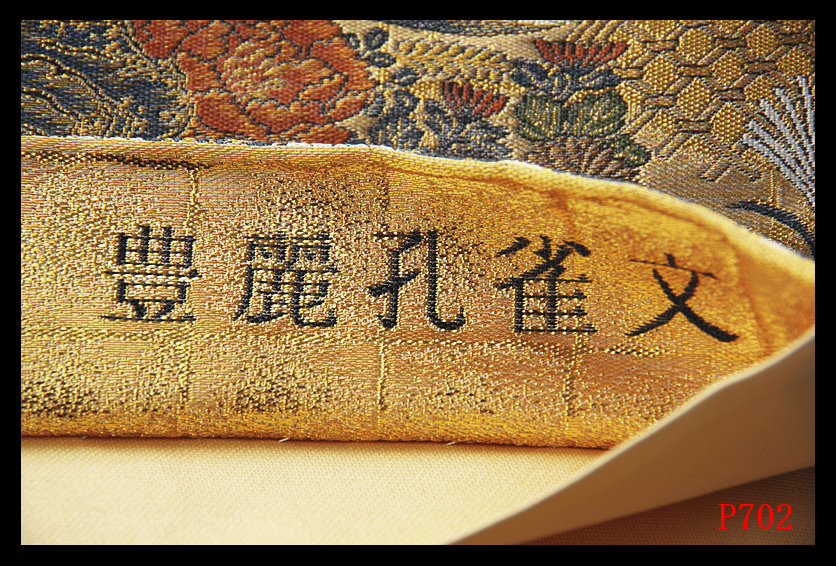 豊麗孔雀文
P702